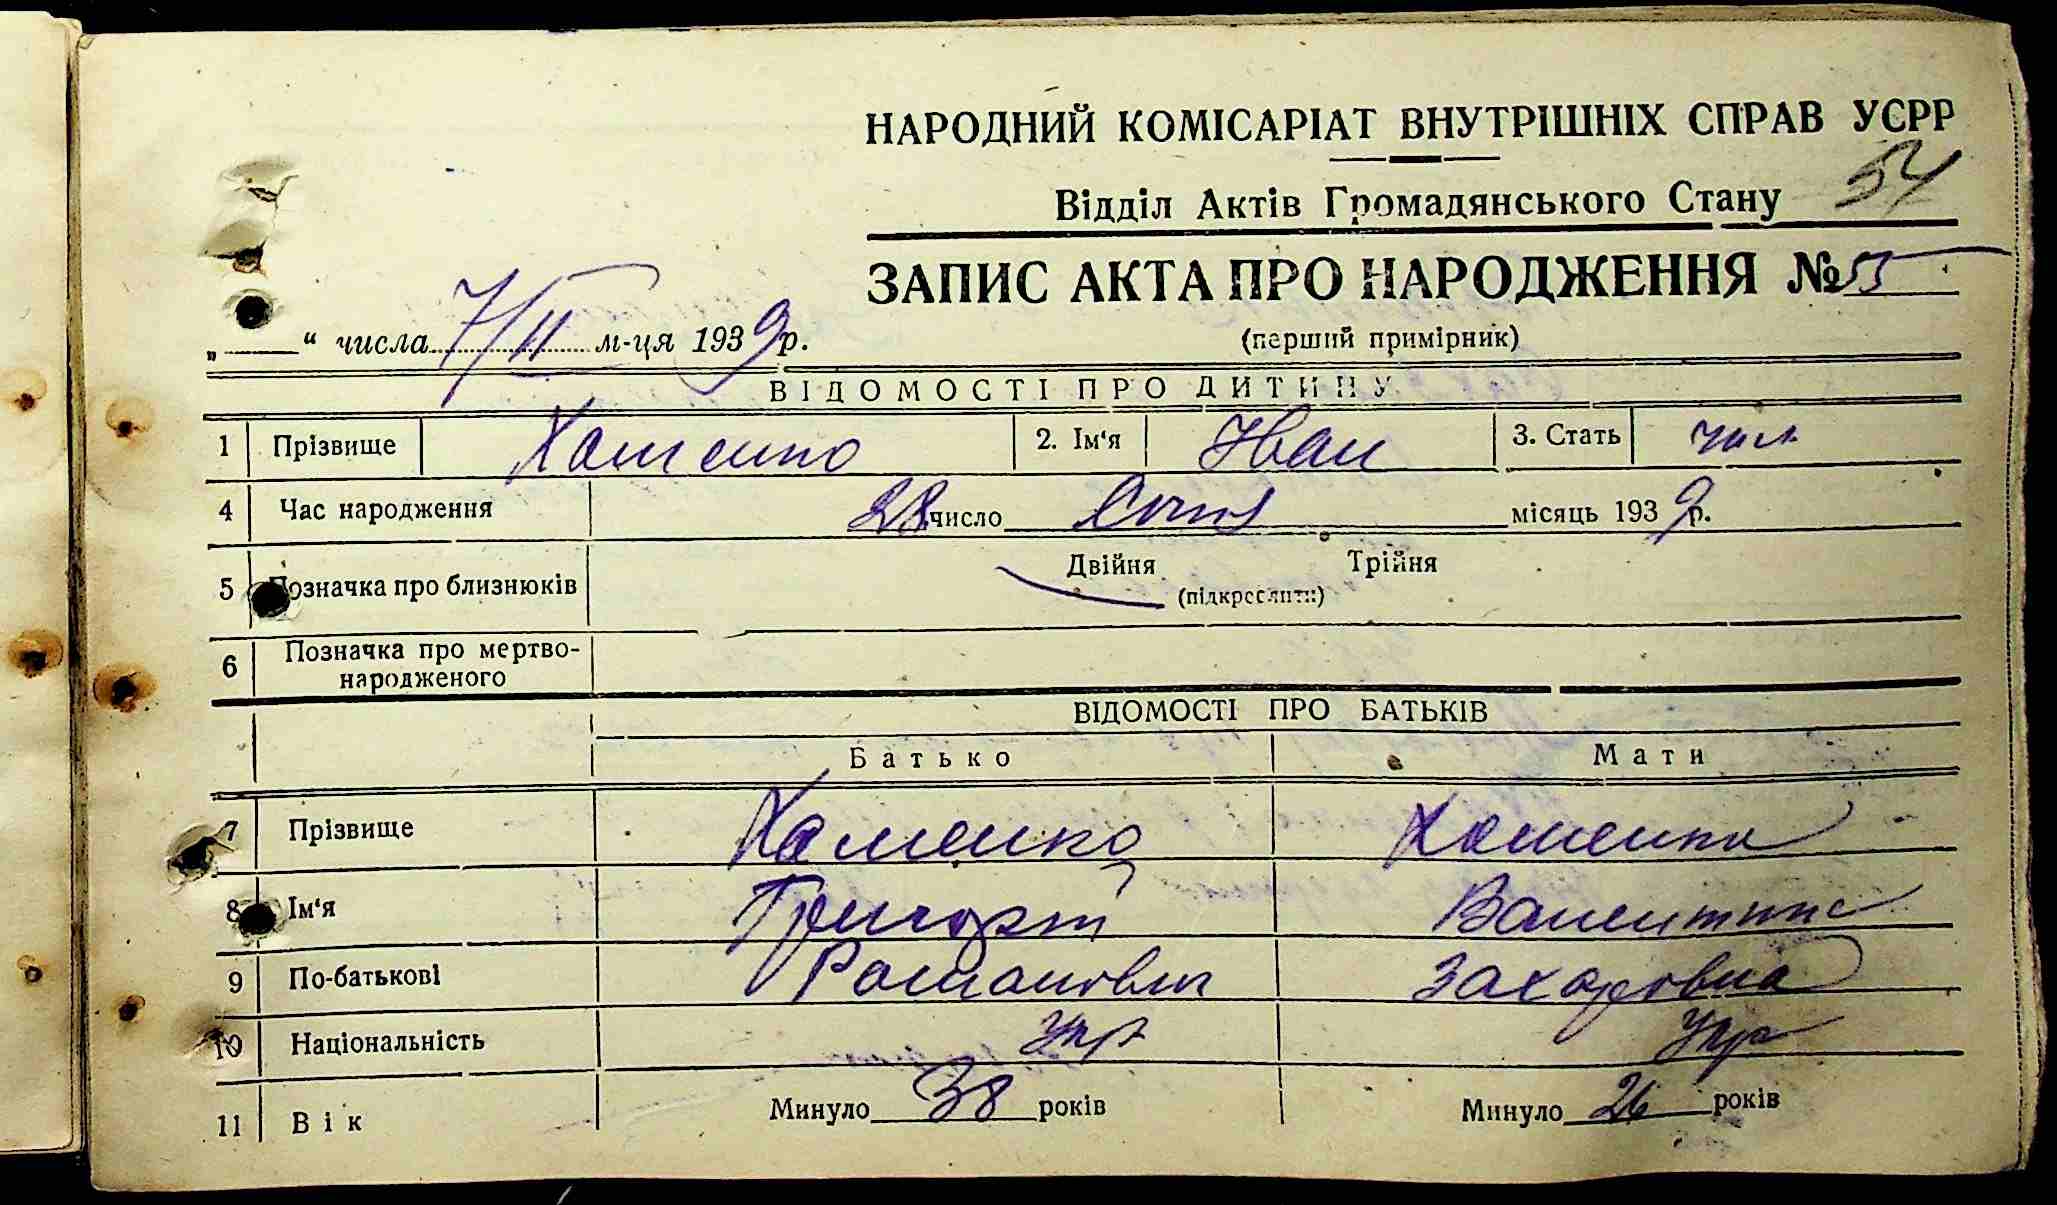 НАРОДНИЙ КОМІСАРІАТ ВНУТРІШНІХ СПРАВ УСРР
Відділ Актів Громадянського Стану 54
ЗАПИС АКТА ПРО НАРОДЖЕННЯ № 55
„ “ числа 7/II м-ця 1939 р.
(перший примірник)
ВІДОМОСТІ ПРО ДИТИНУ
1 Прізвище Хоменко 2. Ім‘я Иван 3. Стать чол
4 Час народження 28 число місяць 1939 р.
5 Позначка про близнюків Двійня Трійня
(підкреслити)
6 Позначка про мертво-
народженого
ВІДОМОСТІ ПРО БАТЬКІВ
Батько Мати
7 Прізвище Хоменко Хоменко
8 Ім‘я Григорій Валентина
9 По-батькові Романович Захаровна
10 Національність Укр Укр
11 Вік Минуло 38 років Минуло 26 років